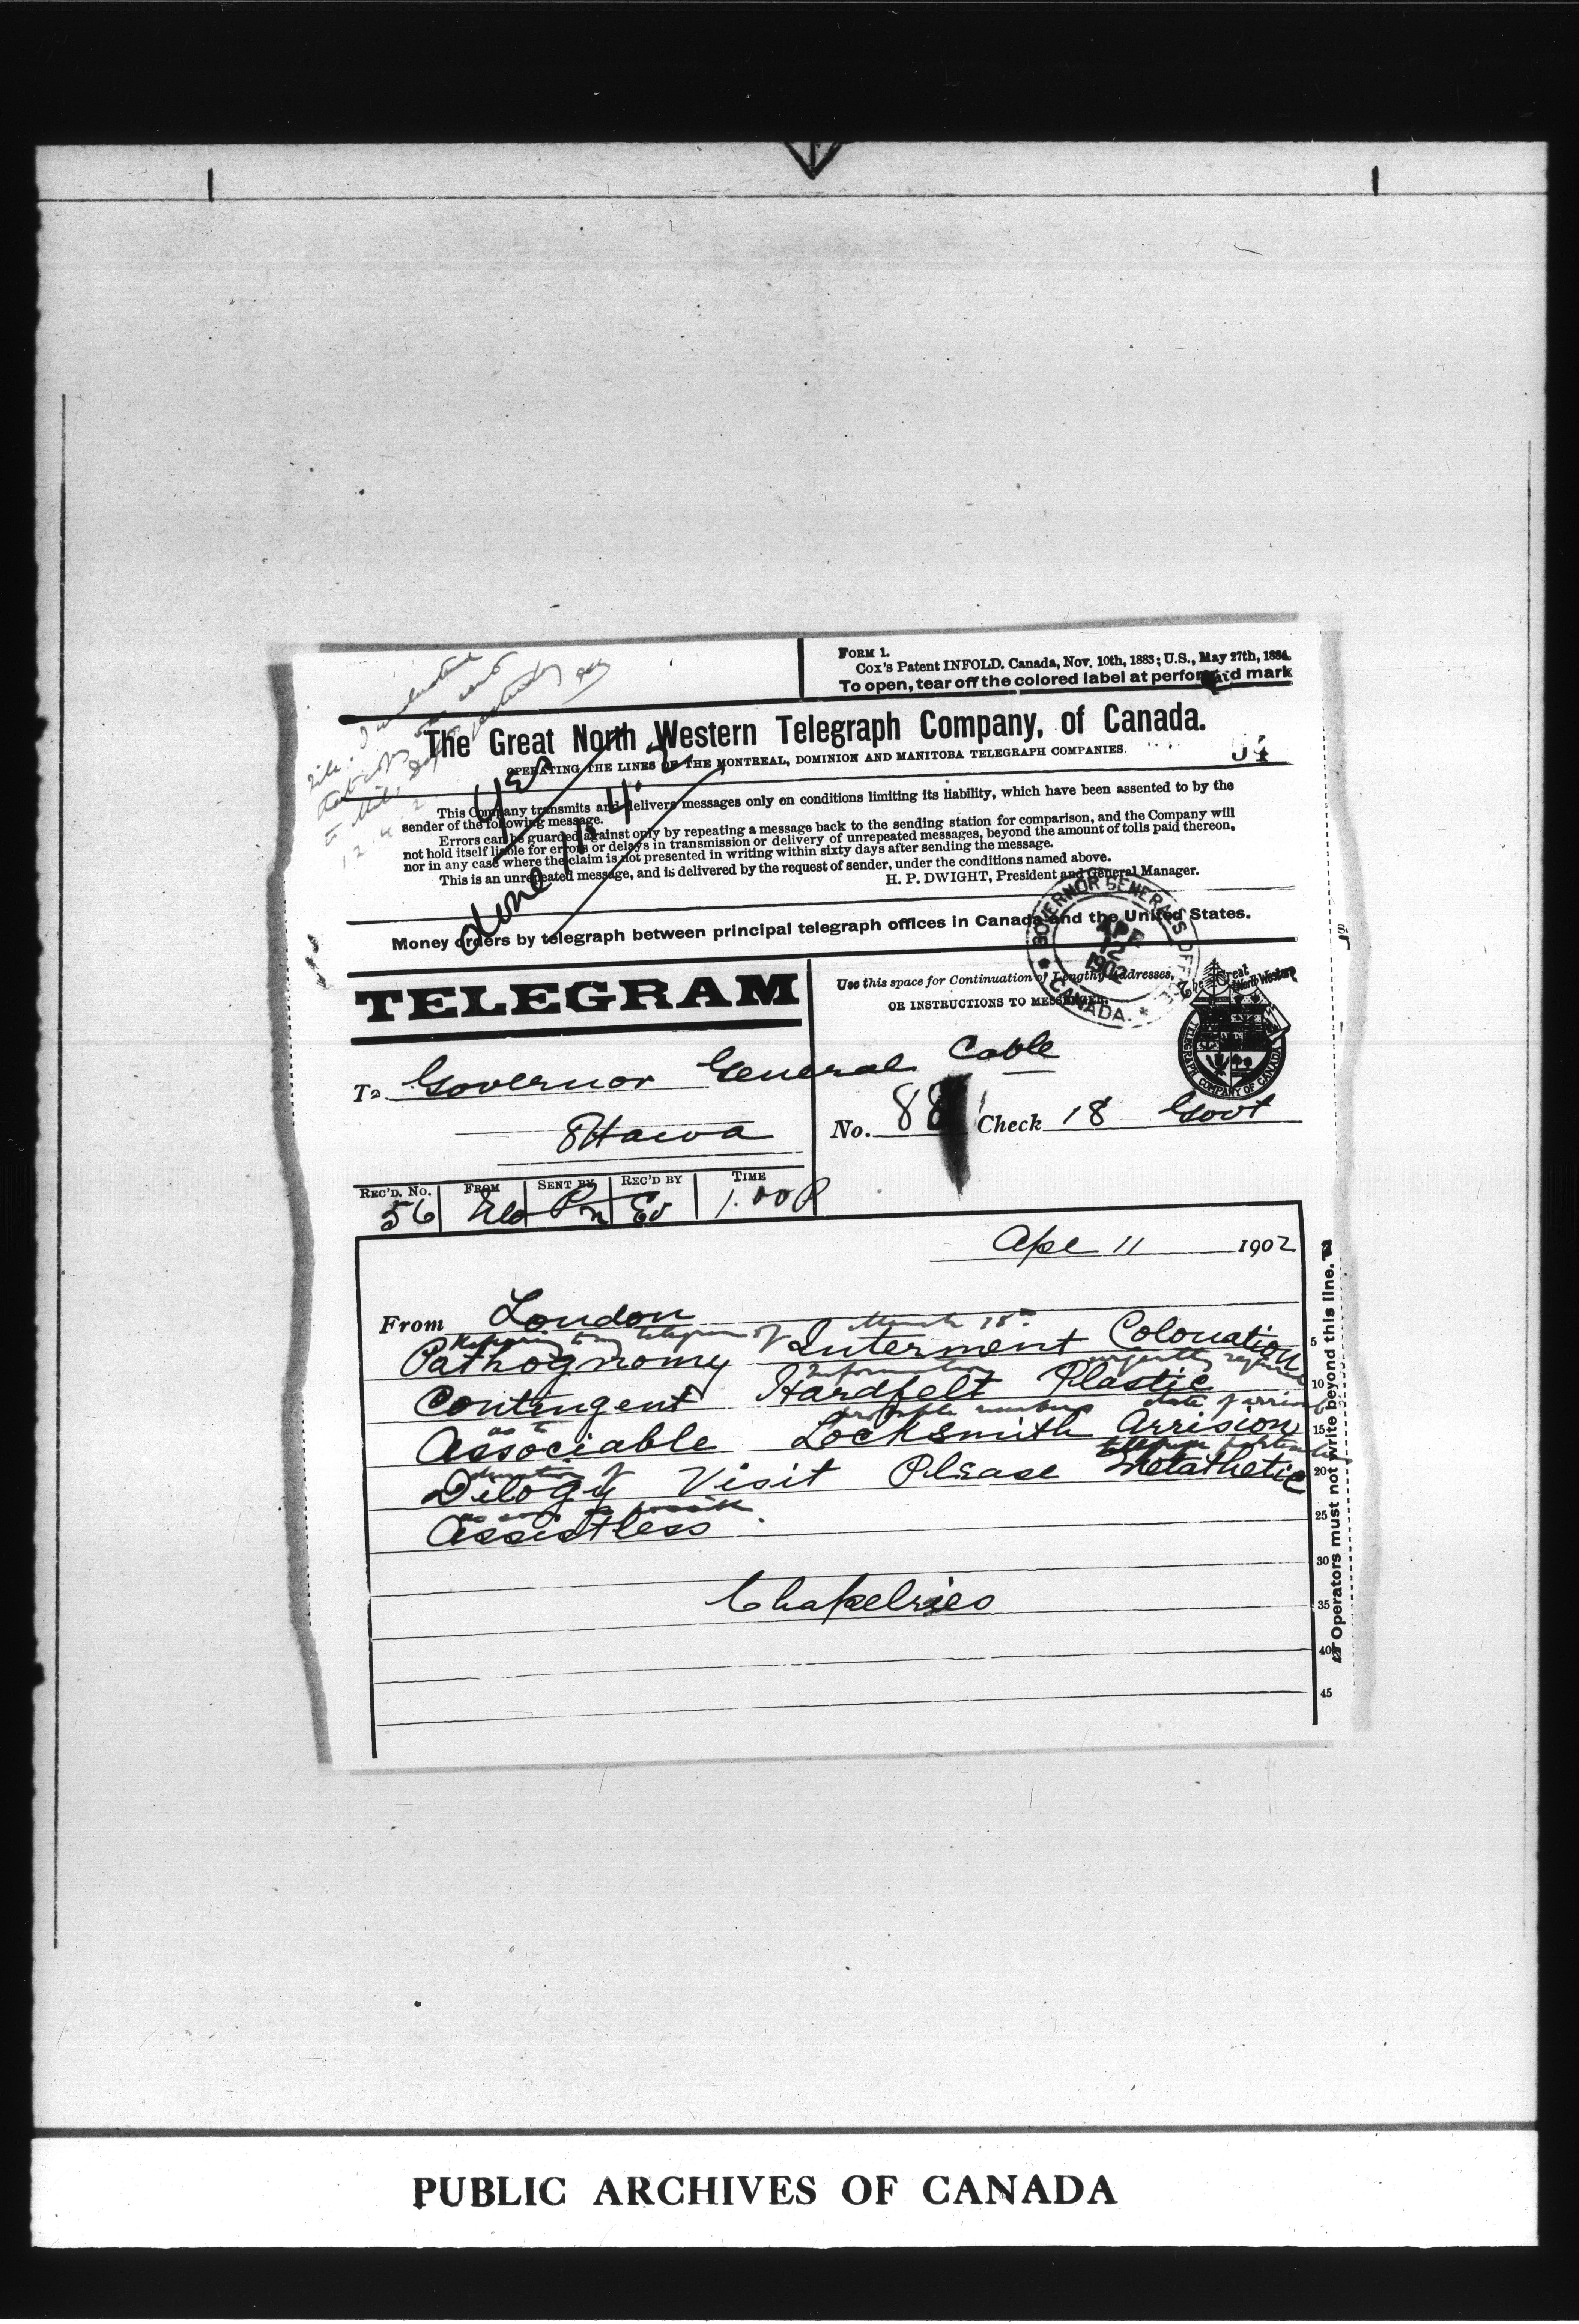 FORM 1.
Cox's Patent INFOLD. Canada, Nov. 10th, 1883; U.S., May 27th, 1884.
To open, tear off the colored label at perforated mark
The Great North Western Telegraph Company, of Canada.
OPERATING THE LINES OF THE MONTREAL, DOMINION AND MANITOBA TELEGRAPH COMPANIES.
54
This Company transmits and delivers messages only on conditions limiting its liability, which have been assented to by the
sender of the following message.
Errors can be guarded against only by repeating a message back to the sending station for comparison, and the Company will
not hold itself liable for errors or delays in transmission or delivery of unrepeated messages, beyond the amount of tolls paid thereon,
nor in any case where the claim is not presented in writing within sixty days after sending the message.
This is an unrepeated message, and is delivered by the request of sender, under the conditions named above.
H. P. DWIGHT, President and General Manager.
Money orders by telegraph between principal telegraph offices in Canada and the United States.
GOVERNOR GENERAL'S OFFICE
12
1902
CANADA.
TELEGRAM
Use this space for Continuation of Lengthy Addresses,
OR INSTRUCTIONS TO MESSENGER.
The Great North Western
TELEGRAPH COMPANY OF CANADA
To Governor General Cable
Ottawa
No. 88 Check 18 Govt
REC'D. No. FROM SENT BY REC'D BY TIME
56 1.00P
Apl 11 1902
From London
telegram of March 18
Pathognomy Interment Colonation
Information urgently
Contingent Hardfelt Plastic
as to probable numbers date of arrival
Associable Locksmith Arrision
duration of
Dilogy Visit Please Metathetic
as soon as possible
Assistless
Chapelries
5
10
15
20
25
30
35
40
45
Operators must not write beyond this line.
PUBLIC ARCHIVES OF CANADA